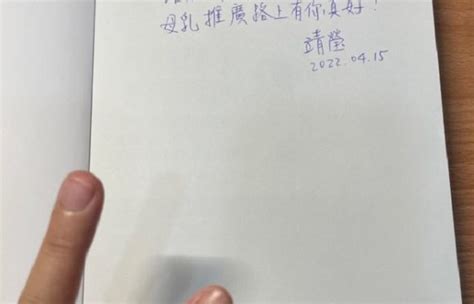 母乳推廣路上有你真好!
靖瑩
2022.04.15